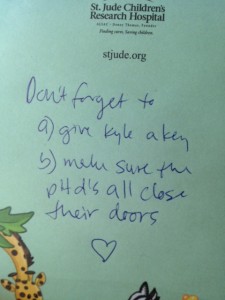 St. Jude Children's
Research Hospital
Finding cures. Saving children.
stjude.org
Don't forget to
a) give Kyle a key
b) make sure the
pHd's all close
their doors